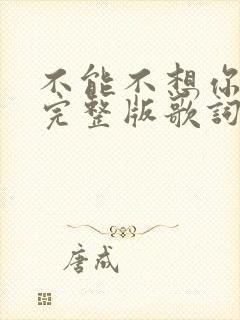 不能不想你
完整版歌词
唐成